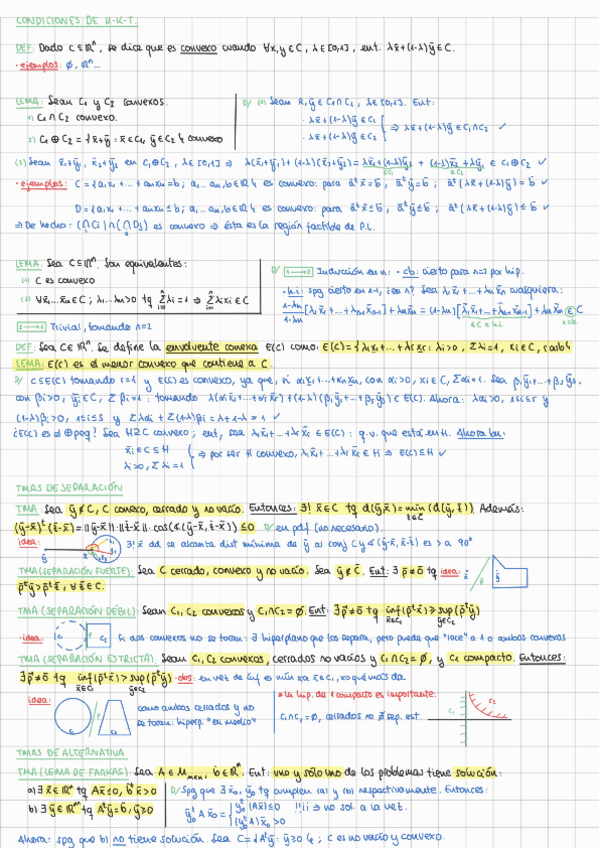 CONDICIONES DE K-K-T:
DEF: Dado C⊆ℝⁿ, se dice que es convexo cuando ∀x,y∈C, λ∈[0,1], ent. λx̄+(1-λ)ȳ∈C.
· ejemplos: ∅, ℝⁿ...
LEMA: Sean C₁ y C₂ convexos.
1) C₁∩C₂ convexo.
2) C₁⊕C₂ = {x̄+ȳ : x̄∈C₁, ȳ∈C₂} convexo
D/ (1) Sean x̄,ȳ∈C₁∩C₂, λ∈[0,1]. Ent:
· λx̄+(1-λ)ȳ∈C₁
· λx̄+(1-λ)ȳ∈C₂ ⇒ λx̄+(1-λ)ȳ∈C₁∩C₂ ✓
(2) Sean x̄₁+ȳ₁, x̄₂+ȳ₂ en C₁⊕C₂, λ∈[0,1] ⇒
· ejemplos: C = {a₁x₁+...+aₙxₙ=b; a₁...aₙ,b∈ℝ} es convexo: para āᵗx̄=b, āᵗȳ=b; āᵗ(λx̄+(1-λ)ȳ)=b ✓
D = {a₁x₁+...+aₙxₙ≤b; a₁...aₙ,b∈ℝ} es convexo: para āᵗx̄≤b, āᵗȳ≤b; āᵗ(λx̄+(1-λ)ȳ)≤b ✓
⇒ De hecho: (∩Ci)∩(∩Dj) es convexo ⇒ ésta es la región factible de P.L.
LEMA: Sea C⊆ℝⁿ. Son equivalentes:
(1) C es convexo
(2) ∀x̄₁...x̄ₙ∈C; λ₁...λₙ>0 tq Σλi=1 ⇒ Σλixi∈C
D/ 1→2 Inducción en n: · cb: cierto para n=2 por hip.
· h.i: spg cierto en n-1, ¿en n? Sea λ₁x̄₁+...+λₙx̄ₙ cualquiera:
2→1 Trivial, tomando n=2
DEF: Sea C⊆ℝⁿ. Se define la envolvente convexa E(C) como: E(C)={λ₁x₁+...+λrxr : λi>0, Σλi=1, xi∈C, r∈ℕ}
LEMA: E(C) es el menor convexo que contiene a C.
D/ C⊆E(C) tomando r=1 y E(C) es convexo, ya que, si
¿E(C) es el + peq? Sea H⊇C convexo; ent,
x̄i∈C⊆H
λi>0, Σλi=1 ⇒ por ser H convexo, λ₁x̄₁+...+λrx̄r∈H ⇒ E(C)⊆H ✓
TMAS DE SEPARACIÓN
TMA: Sea ȳ∉C, C convexo, cerrado y no vacío. Entonces: ∃! x̄∈C tq d(ȳ,x̄)=min(d(ȳ,z̄)) Además:
(ȳ-x̄)ᵗ(z̄-x̄)=||ȳ-x̄||·||z̄-x̄||·cos(∢(ȳ-x̄,z̄-x̄))≤0 D/ en pdf (no necesario).
idea: ∃! x̄ dd se alcanza dist mínima de ȳ al conj C y ∢(ȳ-x̄,z̄-x̄) es > a 90°
TMA (SEPARACIÓN FUERTE): Sea C cerrado, convexo y no vacío. Sea ȳ∉C. Ent: ∃p̄≠0̄ tq idea:
p̄ᵗȳ>p̄ᵗz̄, ∀z̄∈C.
TMA (SEPARACIÓN DÉBIL): Sean C₁,C₂ convexos y C₁∩C₂=∅. Ent: ∃p̄≠0̄ tq inf(p̄ᵗx̄)≥sup(p̄ᵗȳ)
· idea: Si dos convexos no se tocan: ∃ hiperplano que los separa, pero puede que "toce" a 1 o ambos convexos
TMA (SEPARACIÓN ESTRICTA): Sean C₁,C₂ convexos, cerrados no vacíos y C₁∩C₂=∅, y C₁ compacto. Entonces:
∃p̄≠0̄ tq inf(p̄ᵗx̄)>sup(p̄ᵗȳ) · obs: en vez de inf es min xa x̄∈C₁,
idea: como ambos cerrados y no
se tocan: hiperp. "en medio"
* La hip. de 1 compacto es importante:
C₁∩C₂=∅, cerrados no ∃ sep. est.
TMAS DE ALTERNATIVA
TMA (LEMA DE FARKAS): Sea A∈Mₘₓₙ, b̄∈ℝⁿ. Ent: uno y sólo uno de los problemas tiene solución:
a) ∃x̄∈ℝⁿ tq Ax̄≤0, b̄ᵗx̄>0
b) ∃ȳ∈ℝᵐ tq Aᵗȳ=b̄, ȳ≥0
D/ Spg que ∃x̄₀, ȳ₀ tq cumplen (a) y (b) respectivamente. Entonces:
ȳ₀ᵗAx̄₀ = { ȳ₀ᵗ(Ax̄)≤0
(ȳ₀ᵗA)x̄₀>0 !!¡¡ ⇒ no sol a la vez.
Ahora: spg que b) no tiene solución. Sea C={Aᵗȳ: ȳ≥0}; C es no vacío y convexo.